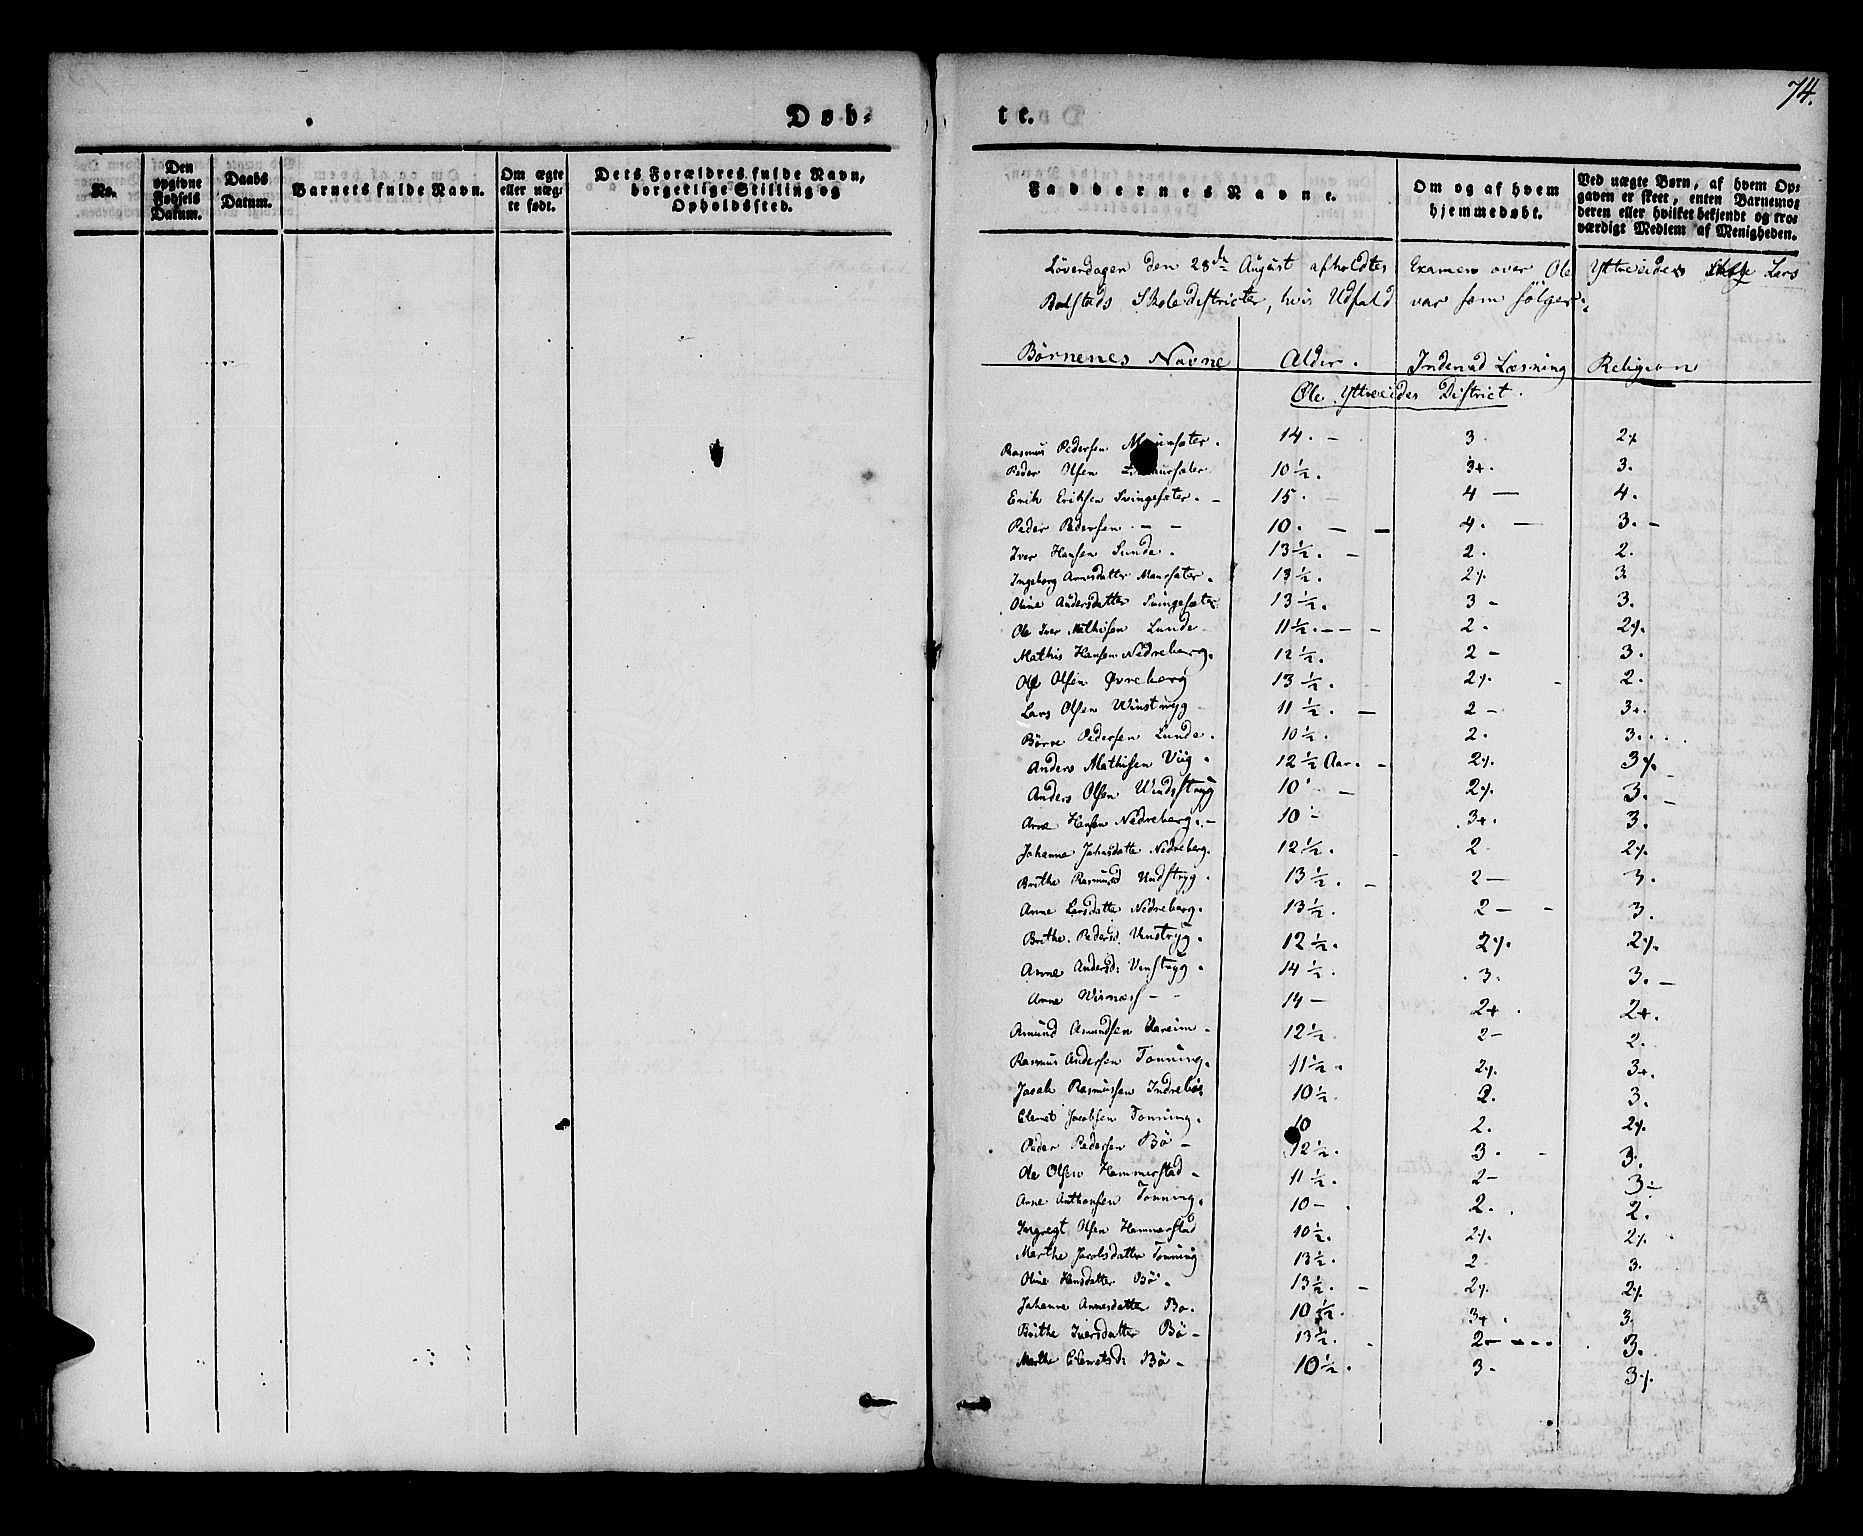 74.
Døb-
te.
No.
Den opgivne Fødsels Datum.
Daabs Datum.
Barnets fulde Navn.
Om ægte eller uægte født.
Dets Forældres fulde Navn, borgerlige Stilling og Opholdssted.
Faddernes Navne.
Om og af hvem hjemmedøbt.
Ved uægte Børn, af hvem Opgaven er skeet, enten Barnemoderen eller hvilket bekjendt og troværdigt Medlem af Menigheden.
Løverdagen den 28de August afholdtes Examen over Ole Yttreeides Lars
Bolstads Skoledistricter, hvis Udfald var som følger:
Børnenes Navne Alder. Indenad Læsning Religion
Ole Yttreeides District.
Rasmus Pedersen 14. - 3. 2%
Peder Olsen 10½. 3+. 3.
Erik Eriksen Svingesæter. - 15. - 4 - 4.
Peder Pedersen - - 10. - - 4. - 3. -
Iver Hansen Sunde. 13½. - 2. 2.
Ingeborg Arnesdatter Maursæter. 13½. 2%. 3
Oline Andersdatter Svingesæter 13½. 3 - 3.
Ole Iver Mathisen Lunde 11½. - - - 2. 2%.
Mathis Hansen Nedreberg. 12½. 2 - 3.
Ole Olsen Øvreberg 13½. 2%. - 2.
Lars Olsen Winstryg 11½. - 2 - 3+.
Børre Pedersen Lunde. 10½. 2. 3.
Anders Mathisen Viig. 12½ Aar. - 2%. 3%.
Anders Olsen Windstryg 10 - 2%. 3. -
Arne Hansen Nedreberg. - 10 - 3+. 3.
Johanne Johnsdatte Nedreberg. 12½. 2 2%.
Brithe Rasmusd Vindstryg. 13½. - 2 - 3.
Anne Larsdatte Nedreberg. 13½. 2 - - 3.
Brithe Pedersd. Venstryg. 12½. 2%. 2%.
Anne Andersd: Venstryg. 14½. 3. 3. -
Anne Wisnæs - - 14 - 2+. 2+.
Amund Amundsen 12½. 2 - 2.
Rasmus Andersen Tonning. 11½. 2%. 3+.
Jacob Rasmussen Indrebøe 10½. 2. 3.
Clemet Jacobsen Tonning. 10 2. 2%.
Peder Pedersen Bø - 12½. 3. - 3.
Ole Olsen Hammerstad - 11½. 2 - 3 -
Arne Anthonsen Tonning. 10 - 2. 2.
Olsen Hammerstad 10½. 2%. 2%.
Marthe Jacobsdatter Tonning 13½. 2 3.
Oline Hansdatter Bø. 13½. - 2%. 2%.
Johanne Annesdatter Bø. 10½. 3+. 3.
Brithe Iversdatter Bø - 13½. 2 - - - - 3.
Marthe Clemetsd: Bø - 10½. 3 - 3%.